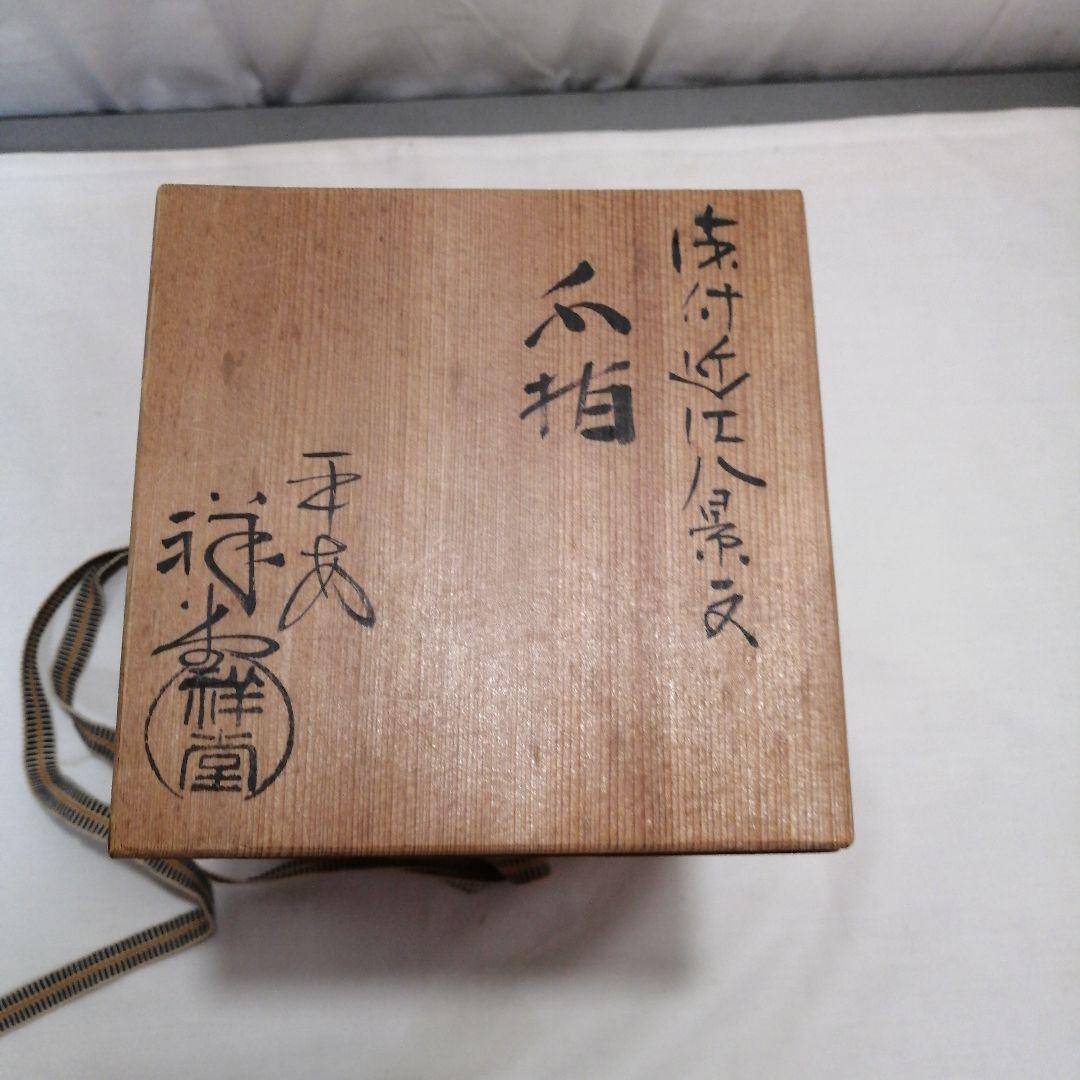 染付近江八景文
水指
平安
祥堂
祥堂